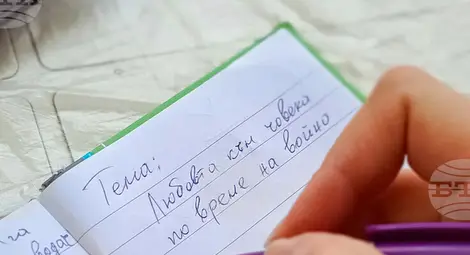 Тема:
Любовта към човека
по време на война
га
водач
БТА